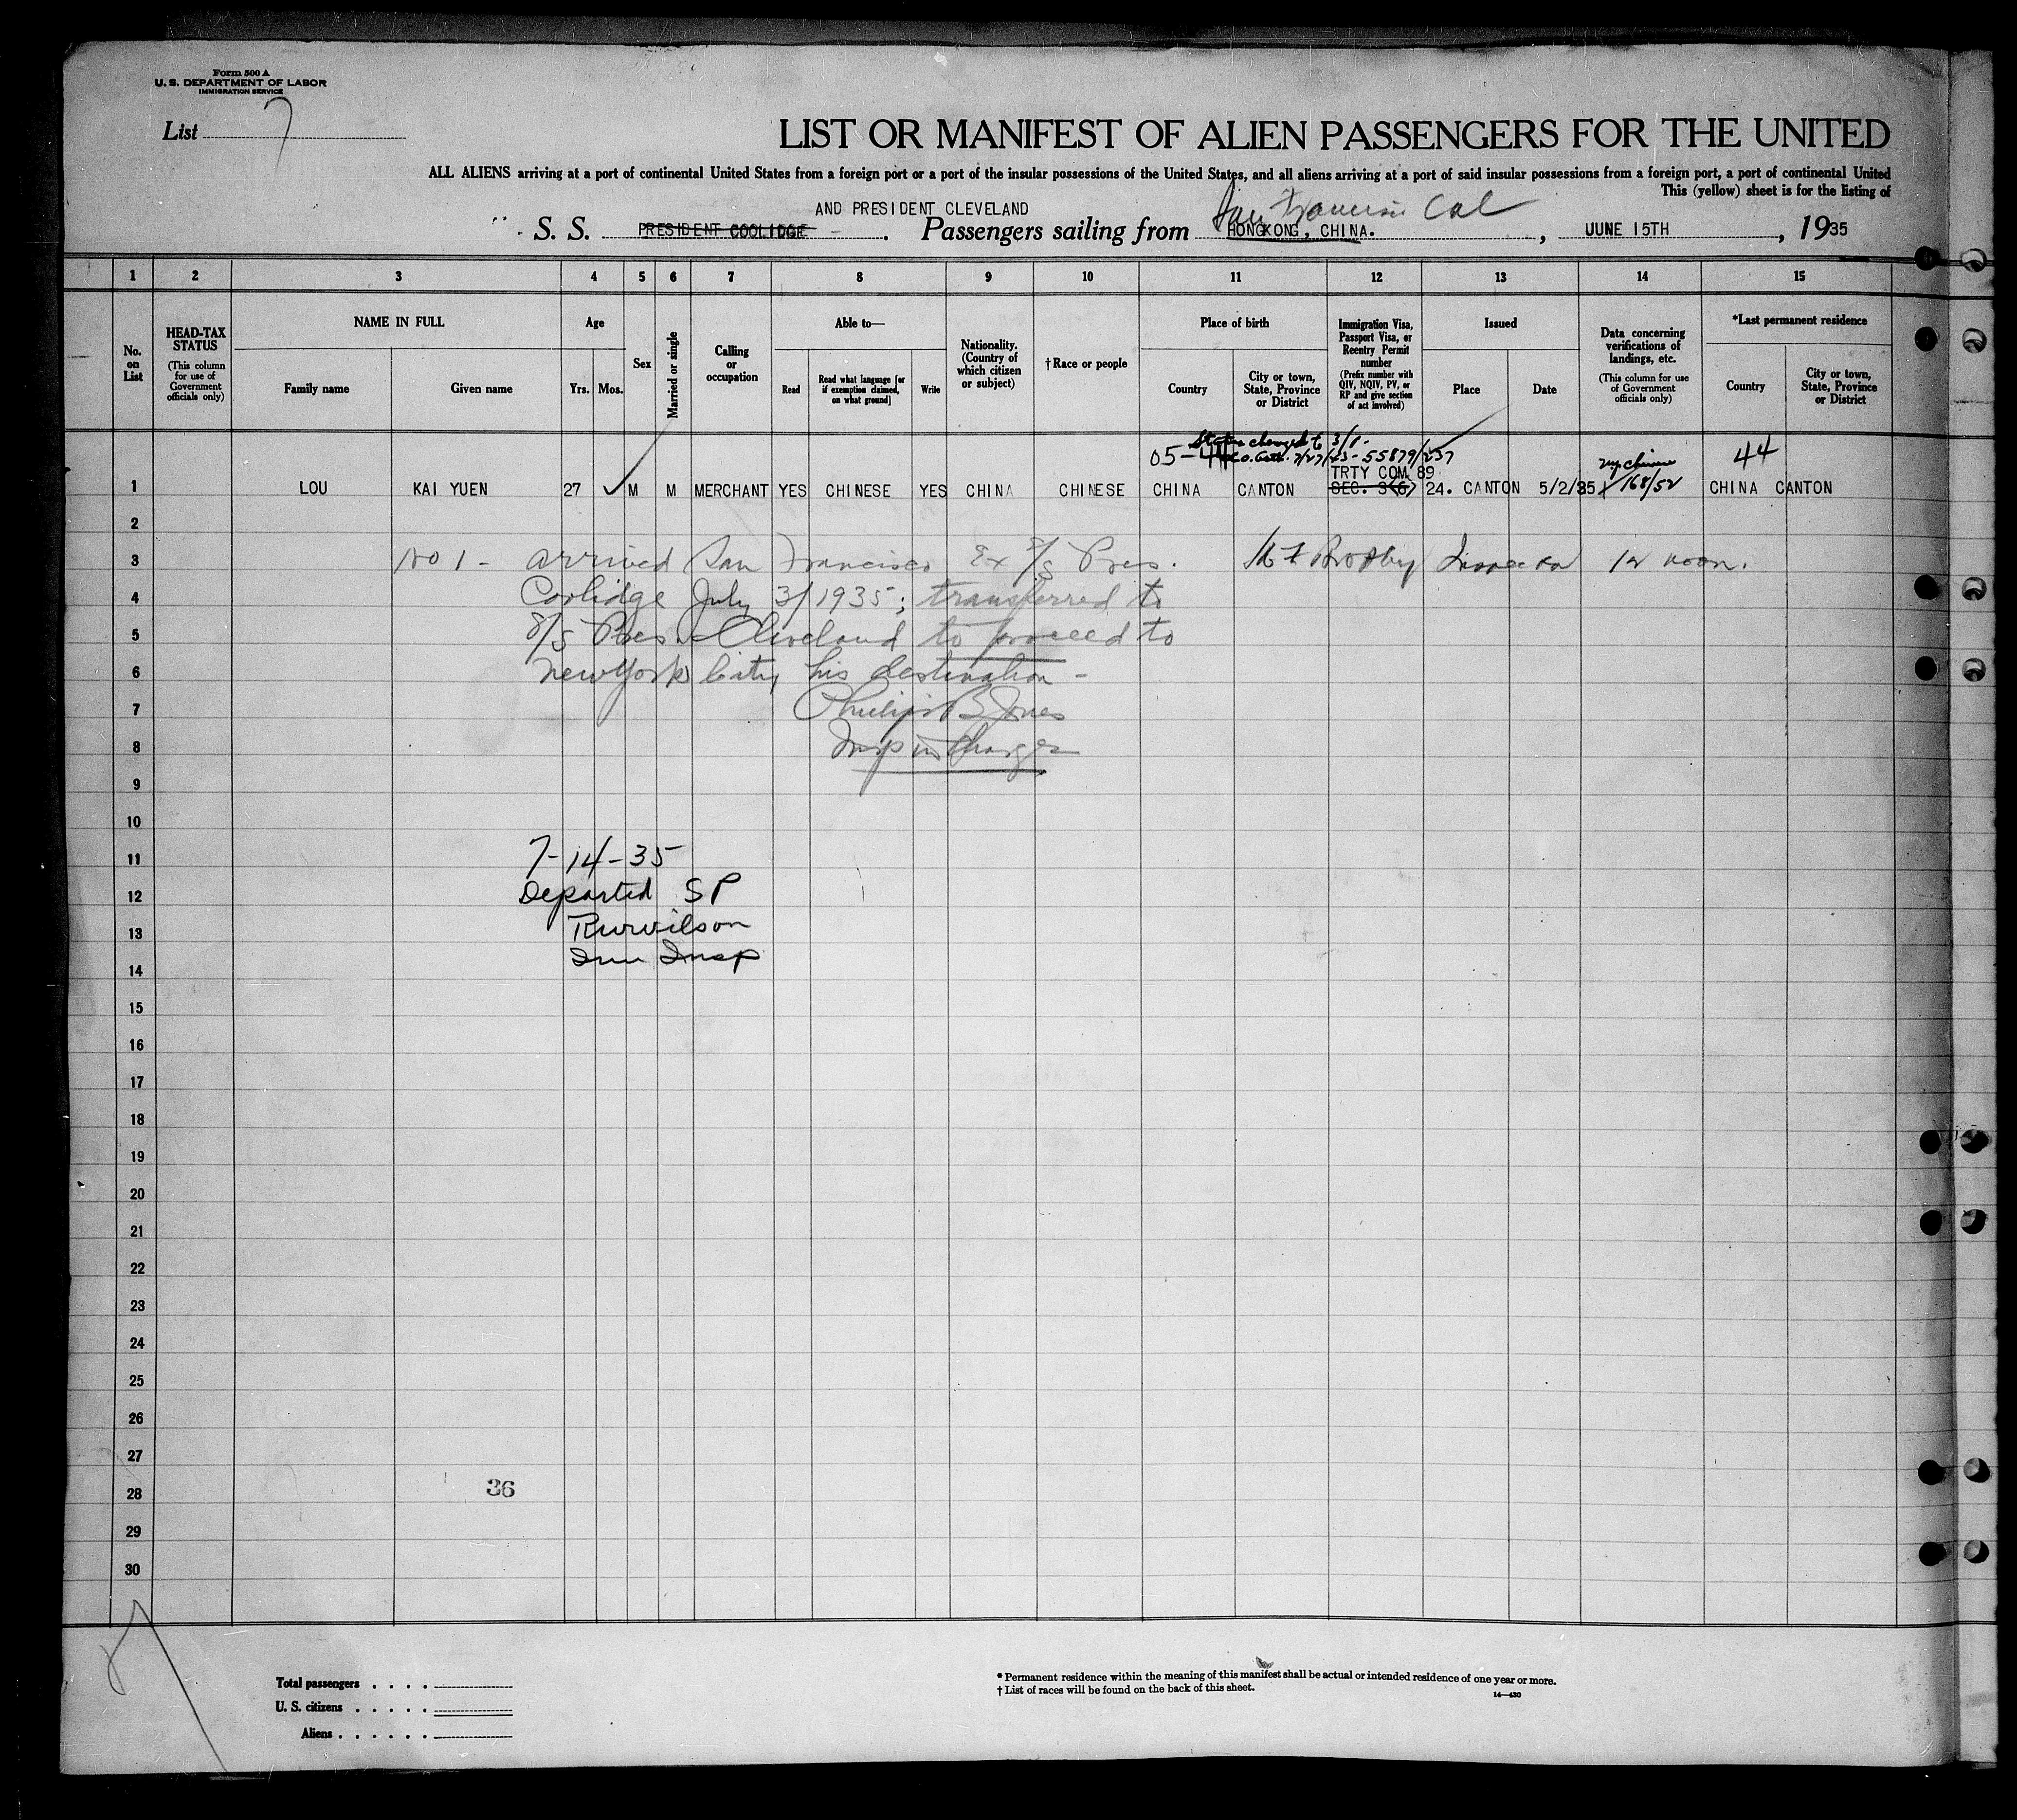 Form 500 A
U. S. DEPARTMENT OF LABOR
IMMIGRATION SERVICE
List 7
LIST OR MANIFEST OF ALIEN PASSENGERS FOR THE UNITED
ALL ALIENS arriving at a port of continental United States from a foreign port or a port of the insular possessions of the United States, and all aliens arriving at a port of said insular possessions from a foreign port, a port of continental United
This (yellow) sheet is for the listing of
AND PRESIDENT CLEVELAND
San Francisco Cal
S. S. PRESIDENT COOLIDGE . Passengers sailing from HONGKONG, CHINA. , JUNE 15TH , 1935
1 2 3 4 5 6 7 8 9 10 11 12 13 14 15
No. on List
HEAD-TAX STATUS
(This column for use of Government officials only)
NAME IN FULL
Family name
Given name
Age
Yrs. Mos.
Sex
Married or single
Calling or occupation
Able to—
Read
Read what language [or if exemption claimed, on what ground]
Write
Nationality. (Country of which citizen or subject)
† Race or people
Place of birth
Country
City or town, State, Province or District
Immigration Visa, Passport Visa, or Reentry Permit number
(Prefix number with QIV, NQIV, PV, or RP and give section of act involved)
Issued
Place
Date
Data concerning verifications of landings, etc.
(This column for use of Government officials only)
*Last permanent residence
Country
City or town, State, Province or District
Status changed to 3/1-
05-44 7/27/43-55879/237
TRTY COM 89
44
1 LOU KAI YUEN 27 M M MERCHANT YES CHINESE YES CHINA CHINESE CHINA CANTON SEC. 3(6) 24. CANTON 5/2/35 168/52 CHINA CANTON
2
3 No 1 - arrived San Francisco Ex S/S Pres. Inspector 12 noon.
4 Coolidge July 3/1935; transferred to
5 S/S Pres. Cleveland to proceed to
6 New York City his destination -
7 Philip B Jones
8 Insp in Charge
9
10
11 7-14-35
12 Departed SP
13 Wilson
Imm Insp
14
15
16
17
18
19
20
21
22
23
24
25
26
27
28 36
29
30
Total passengers . . . .
U. S. citizens . . . . .
Aliens . . . . . .
* Permanent residence within the meaning of this manifest shall be actual or intended residence of one year or more.
† List of races will be found on the back of this sheet.
14—430